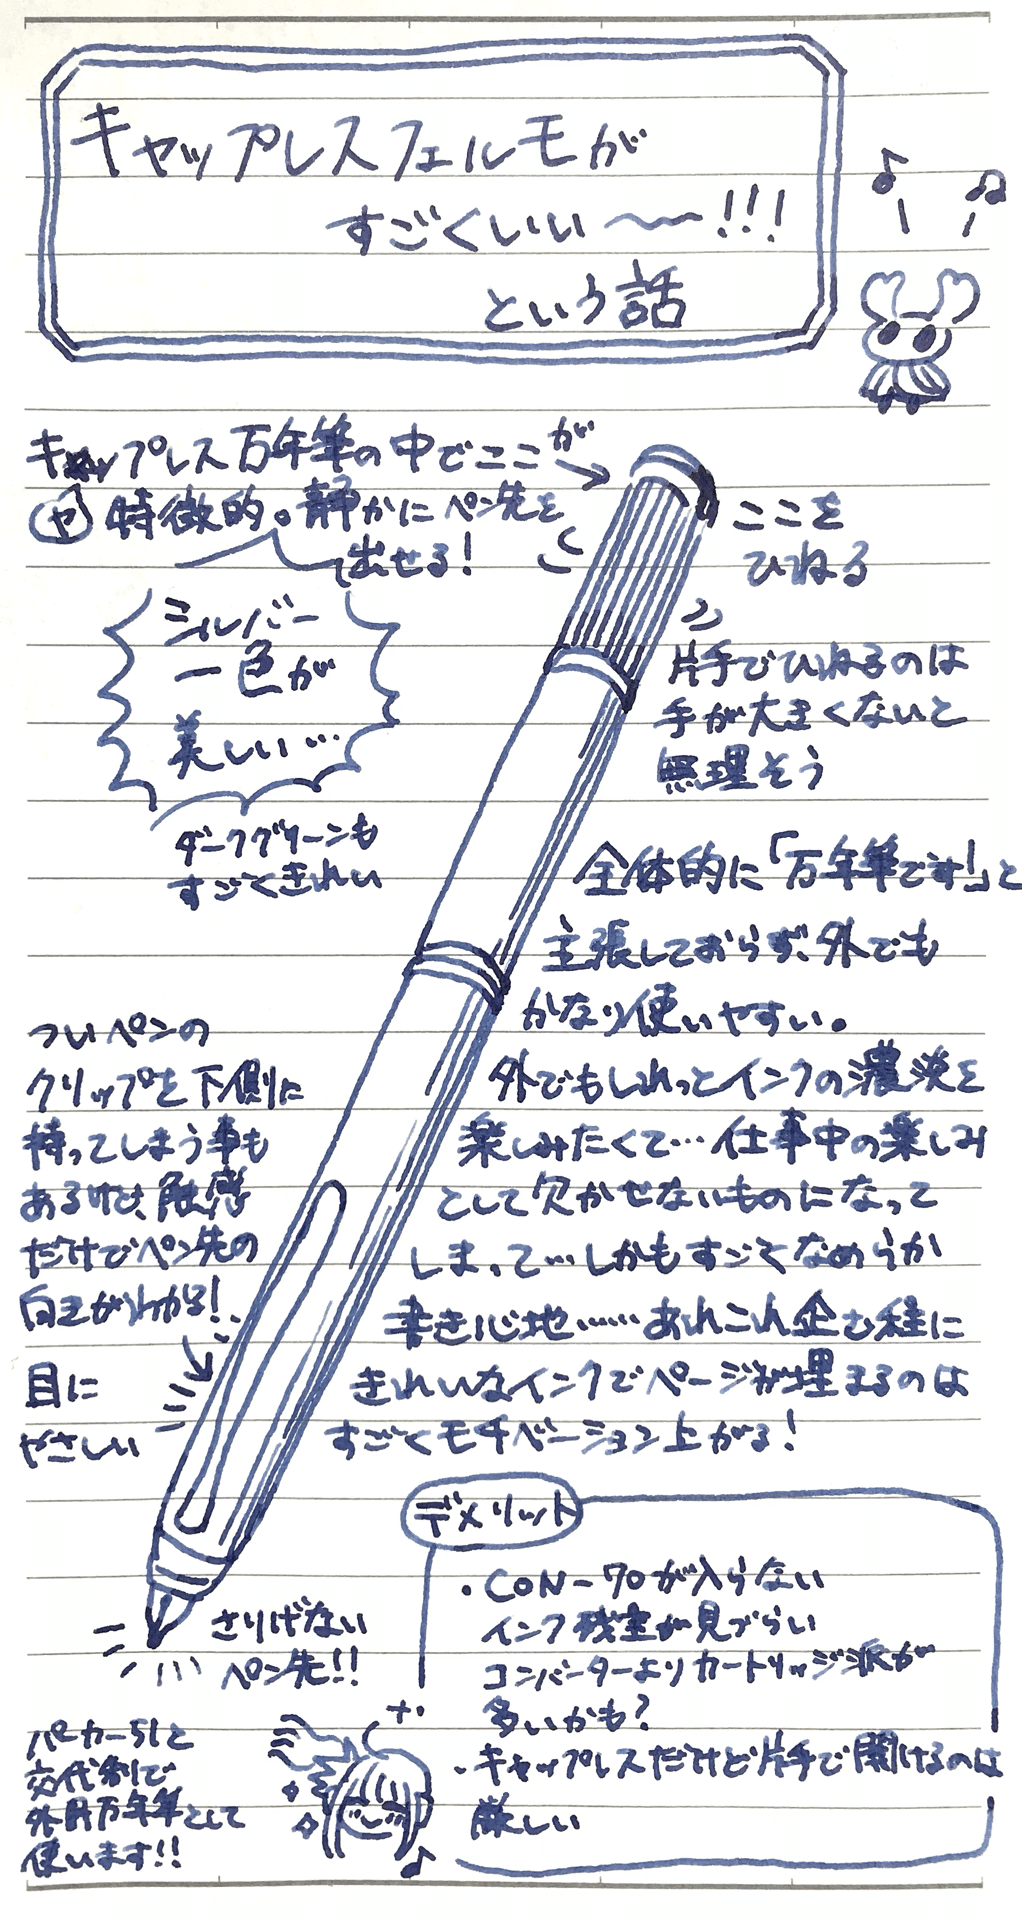 キャップレスフェルモが
すごくいい〜〜!!!
という話
キャップレス万年筆の中でここが
ヤ
特徴的。静かにペン先を
出せる!
ここを
ひねる
シルバー
一色が
美しい…
片手でひねるのは
手が大きくないと
無理そう
ダークグリーンも
すごくきれい
全体的に「万年筆です!」と
主張しておらず、外でも
かなり使いやすい。
外でもしれっとインクの濃淡を
楽しみたくて…仕事中の楽しみ
として欠かせないものになって
しまって…しかもすごくなめらか
書き心地……あれこれ企む程に
きれいなインクでページが埋まるのは
すごくモチベーション上がる!
ついペンの
クリップを下側に
持ってしまう事も
あるけど、触感
だけでペン先の
向きがわかる!
目に
やさしい
さりげない
ペン先!!
デメリット
・CON-70が入らない
インク残量が見づらい
コンバーターよりカートリッジ派が
多いかも?
・キャップレスだけど片手で開けるのは
厳しい
パーカー51と
交代制で
外用万年筆として
使います!!